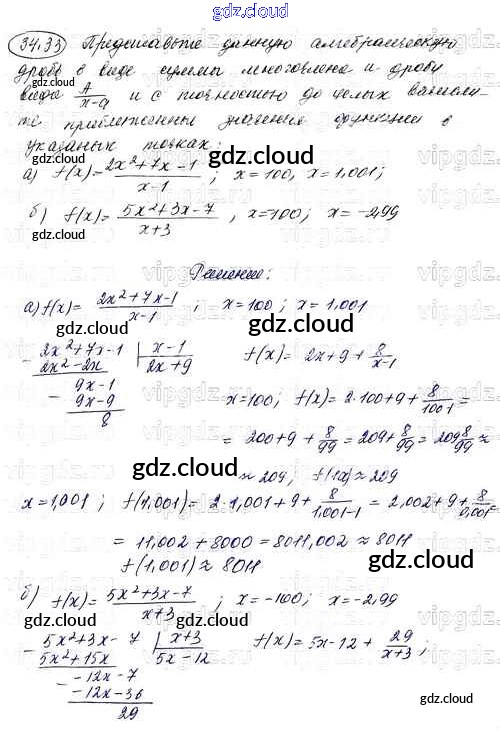 gdz.cloud
34.33 Представьте данную алгебраическую
дробь в виде суммы многочлена и дроби
вида A/(x-a) и с точностью до целых вычисли-
те приближенные значения функции в
указанных точках:
а) f(x) = (2x²+7x-1)/(x-1); x=100, x=1,001;
б) f(x) = (5x²+3x-7)/(x+3), x=100; x=-2,99
Решение:
а) f(x) = (2x²+7x-1)/(x-1); x=100; x=1,001
- 2x²+7x-1 | x-1
2x²-2x | 2x+9
f(x) = 2x+9+8/(x-1)
9x-1
- 9x-9
8
x=100; f(x) = 2·100+9+8/(100-1) =
= 200+9+8/99 = 209+8/99 = 209 8/99 ≈
≈ 209; f(1x) ≈ 209
x=1,001; f(1,001) = 2·1,001+9+8/(1,001-1) = 2,002+9+8/0,001 =
= 11,002+8000 = 8011,002 ≈ 8011
f(1,001) ≈ 8011
б) f(x) = (5x²+3x-7)/(x+3); x=-100; x=-2,99
- 5x²+3x-7 | x+3
5x²+15x | 5x-12
f(x) = 5x-12+29/(x+3);
- -12x-7
-12x-36
29
gdz.cloud